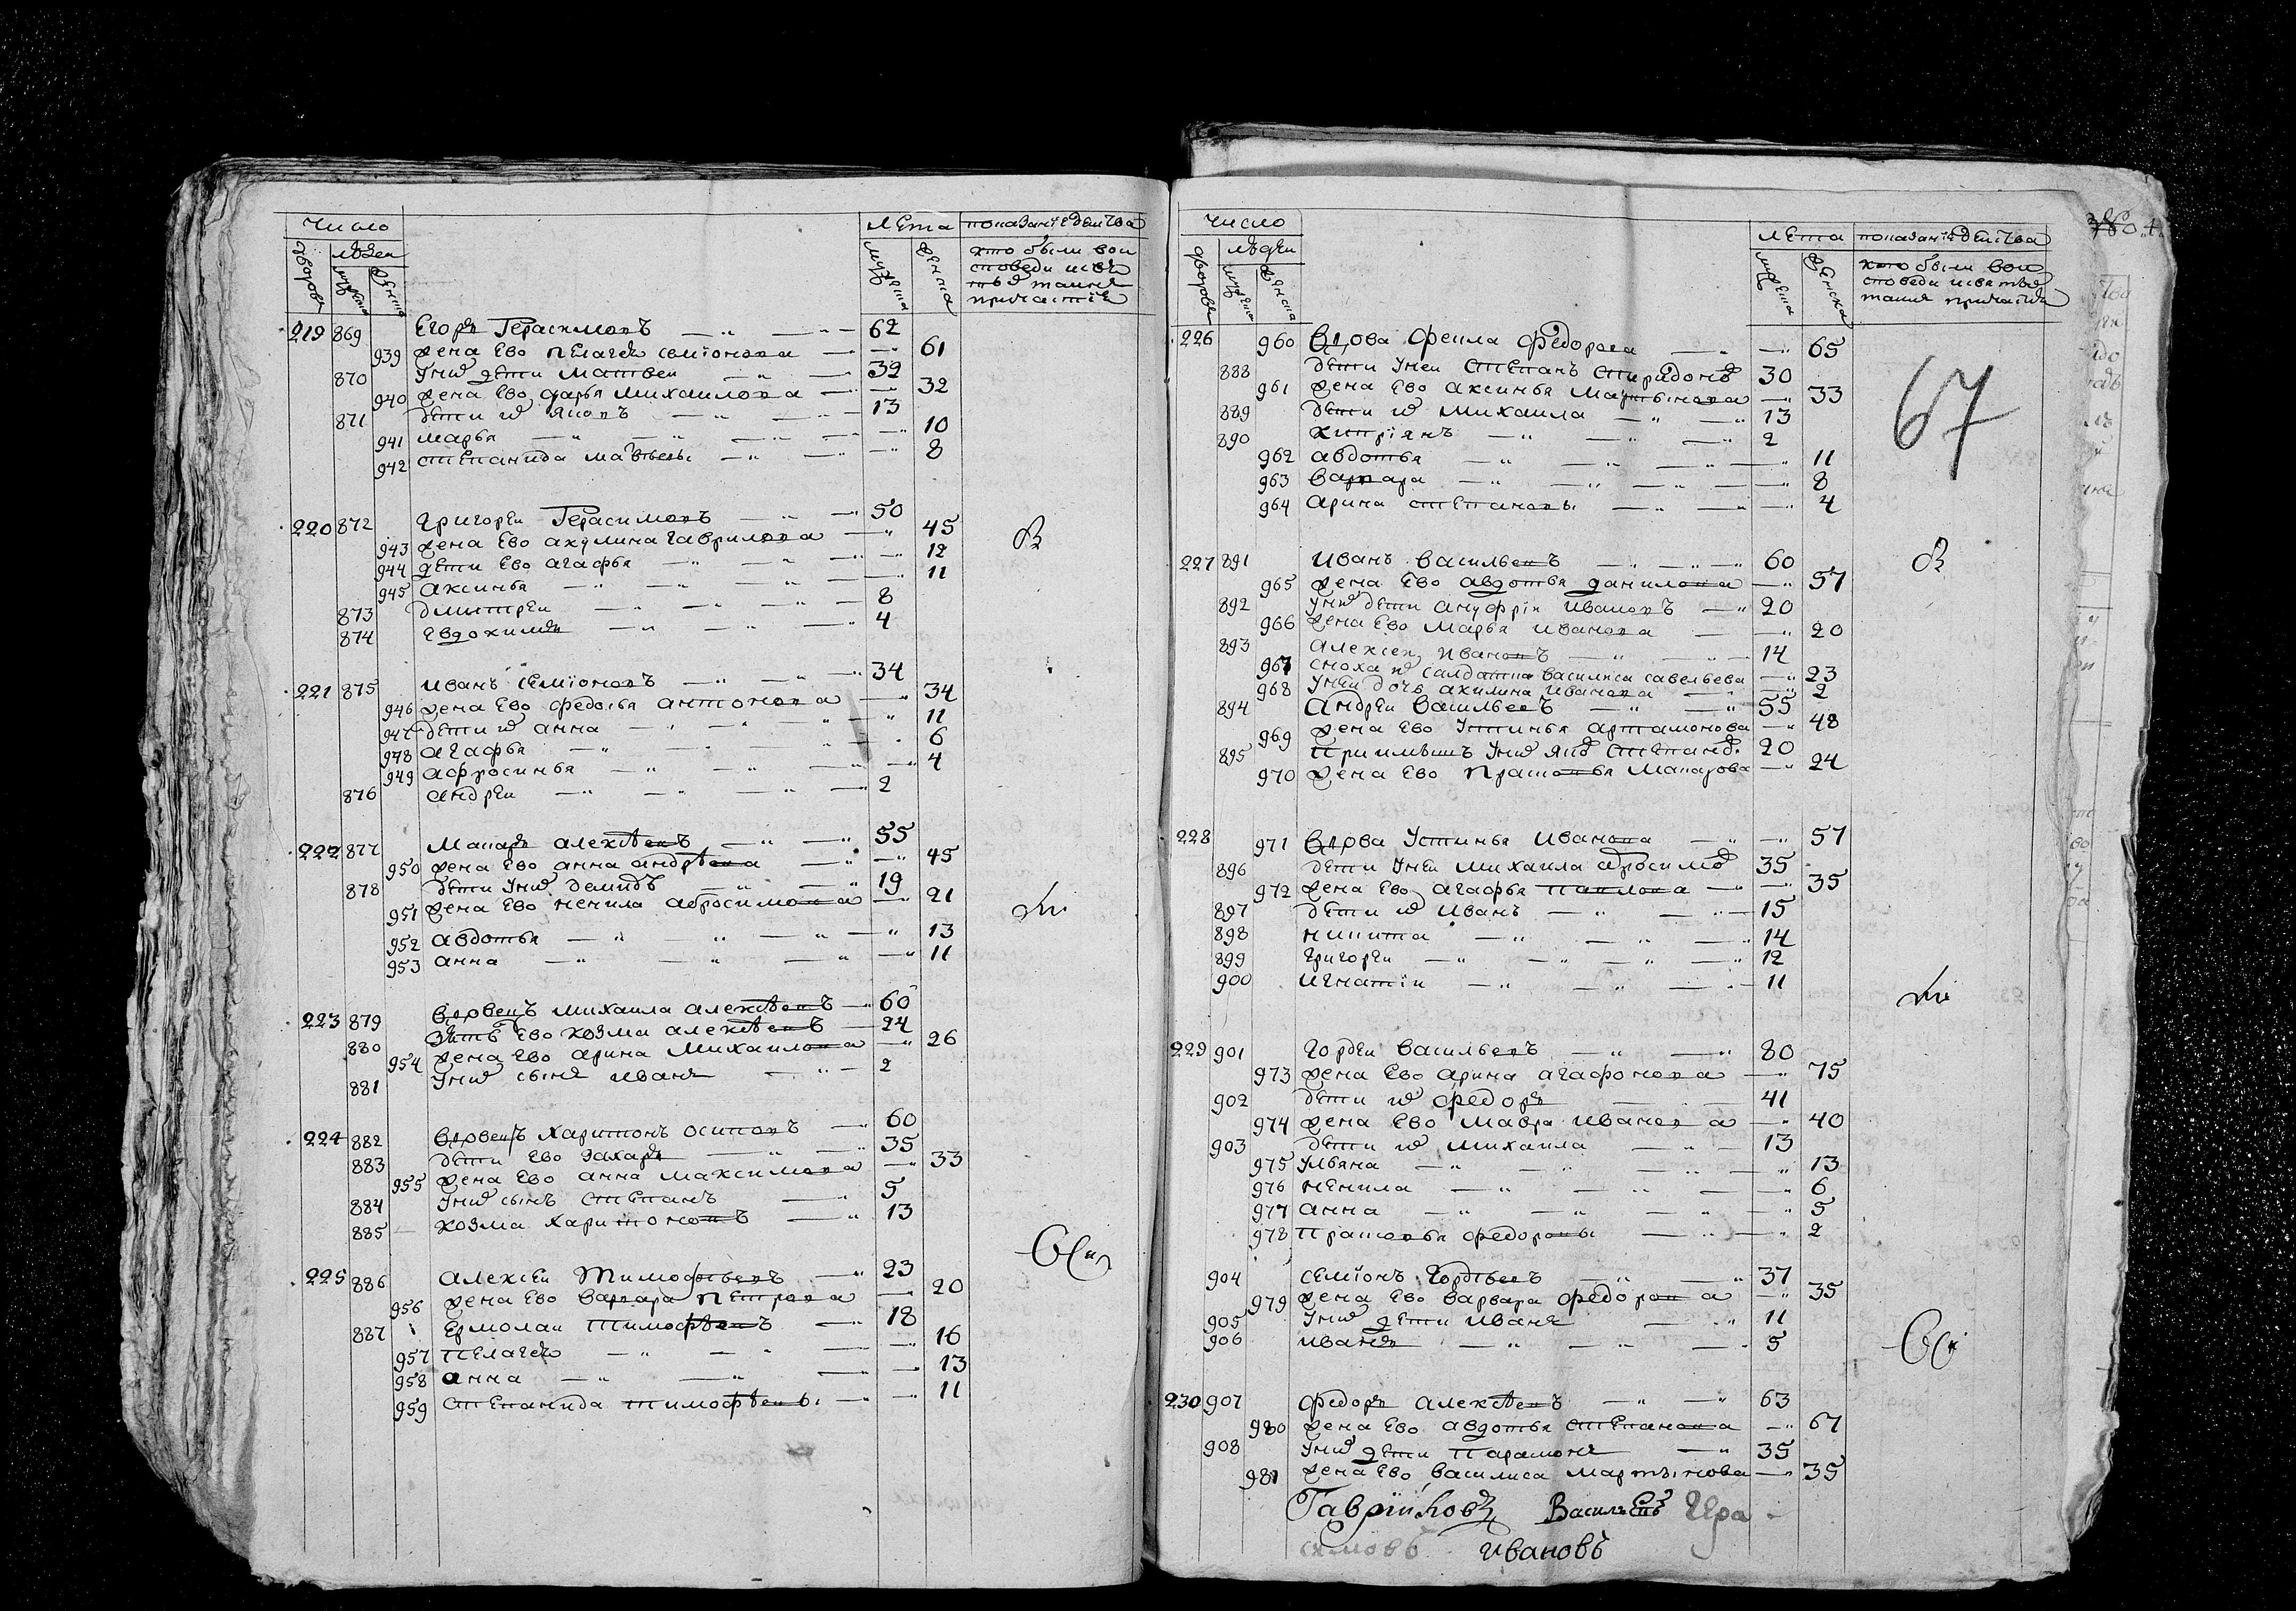 число
лета
показаніе действа
дворовъ
людеи
мужеска
женска
мужеска
женска
кто были во и
споведи и свя
тыя таиня
причастіи
219 869 Егоръ Герасимовъ 62
939 жена Ево Пелагея Семіонова 61
870 Унихъ дети Матвеи 39
940 жена Ево дарья Михаилова 32
871 дети их Яковъ 13
941 марья 10
942 степанида Матвеевы 8
220 872 Григореи Герасимовъ 50
943 жена Ево акулина Гаврилова 45
944 дети Ево агафья 12
945 Аксинья 11
873 дмитреи 8
874 Евдокимъ 4
221 875 Иванъ Семіоновъ 34
946 жена Ево Федосья антонова 34
947 дети их анна 11
978 агафья 6
949 афросинья 4
876 андреи 2
222 877 Макаръ алексѣевъ 55
950 жена Ево анна андрѣева 45
878 дети Уних демидъ 19
951 жена Ево ненила абросимова 21
952 авдотья 13
953 анна 11
223 879 Вдовецъ михаила алексѣевъ 60
880 Зять Ево козма алексѣевъ 24
954 жена Ево арина Михаилова 26
881 Уних сынъ иванъ 2
224 882 Вдовецъ Харитонъ осиповъ 60
883 дети Ево Захаръ 35
955 жена Ево анна Максимова 33
884 Уних сынъ Степанъ 5
885 козма харитоновъ 13
225 886 алексеи Тимофѣевъ 23
956 жена Ево варвара Петрова 20
887 Ермолаи тимофѣевъ 18
957 Пелагея 16
958 анна 13
959 степанида тимофѣевы 11
число
лета
показаніе действа
дворовъ
людеи
мужеска
женска
мужеска
женска
кто были во и
споведи и святыя
таиня причастіи
67
226 960 Вдова Фекла Федорова 65
888 дети Унеи Степанъ Спиридоновъ 30
961 жена Ево аксинья Мартынова 33
889 дети их Михаила 13
890 киприянъ 2
962 авдотья 11
963 варвара 8
964 арина степановы 4
227 891 Иванъ васильевъ 60
965 жена Ево авдотья данилова 57
892 Уних дети ануфріи ивановъ 20
966 жена Ево Марья иванова 20
893 алексеи Ивановъ 14
967 сноха их салдатка василиса савельева 23
968 Унеи дочь акилина иванова 2
894 андреи васильевъ 55
969 жена Ево Устинья артамонова 48
895 Приимышъ Уних Яковъ Степановъ 20
970 жена Ево Прасковья Макарова 24
228 971 Вдова Устинья Иванова 57
896 дети Унеи михаила абросимовъ 35
972 жена Ево агафья павлова 35
897 дети их Иванъ 15
898 никита 14
899 григореи 12
900 игнатіи 11
229 901 Гордеи васильевъ 80
973 жена Ево арина агафонова 75
902 дети их федоръ 41
974 жена Ево мавра иванова 40
903 дети их михаила 13
975 ульяна 13
976 ненила 6
977 анна 5
978 Прасковья федоровы 2
904 Семіонъ Гордѣевъ 37
979 жена Ево варвара федорова 35
905 Уних дети иванъ 11
906 иванъ 5
230 907 Федоръ алексѣевъ 63
980 жена Ево авдотья степанова 67
908 Уних дети Парамонъ 35
981 жена Ево василиса мартынова 35
Василеи Гера
симовъ ивановъ